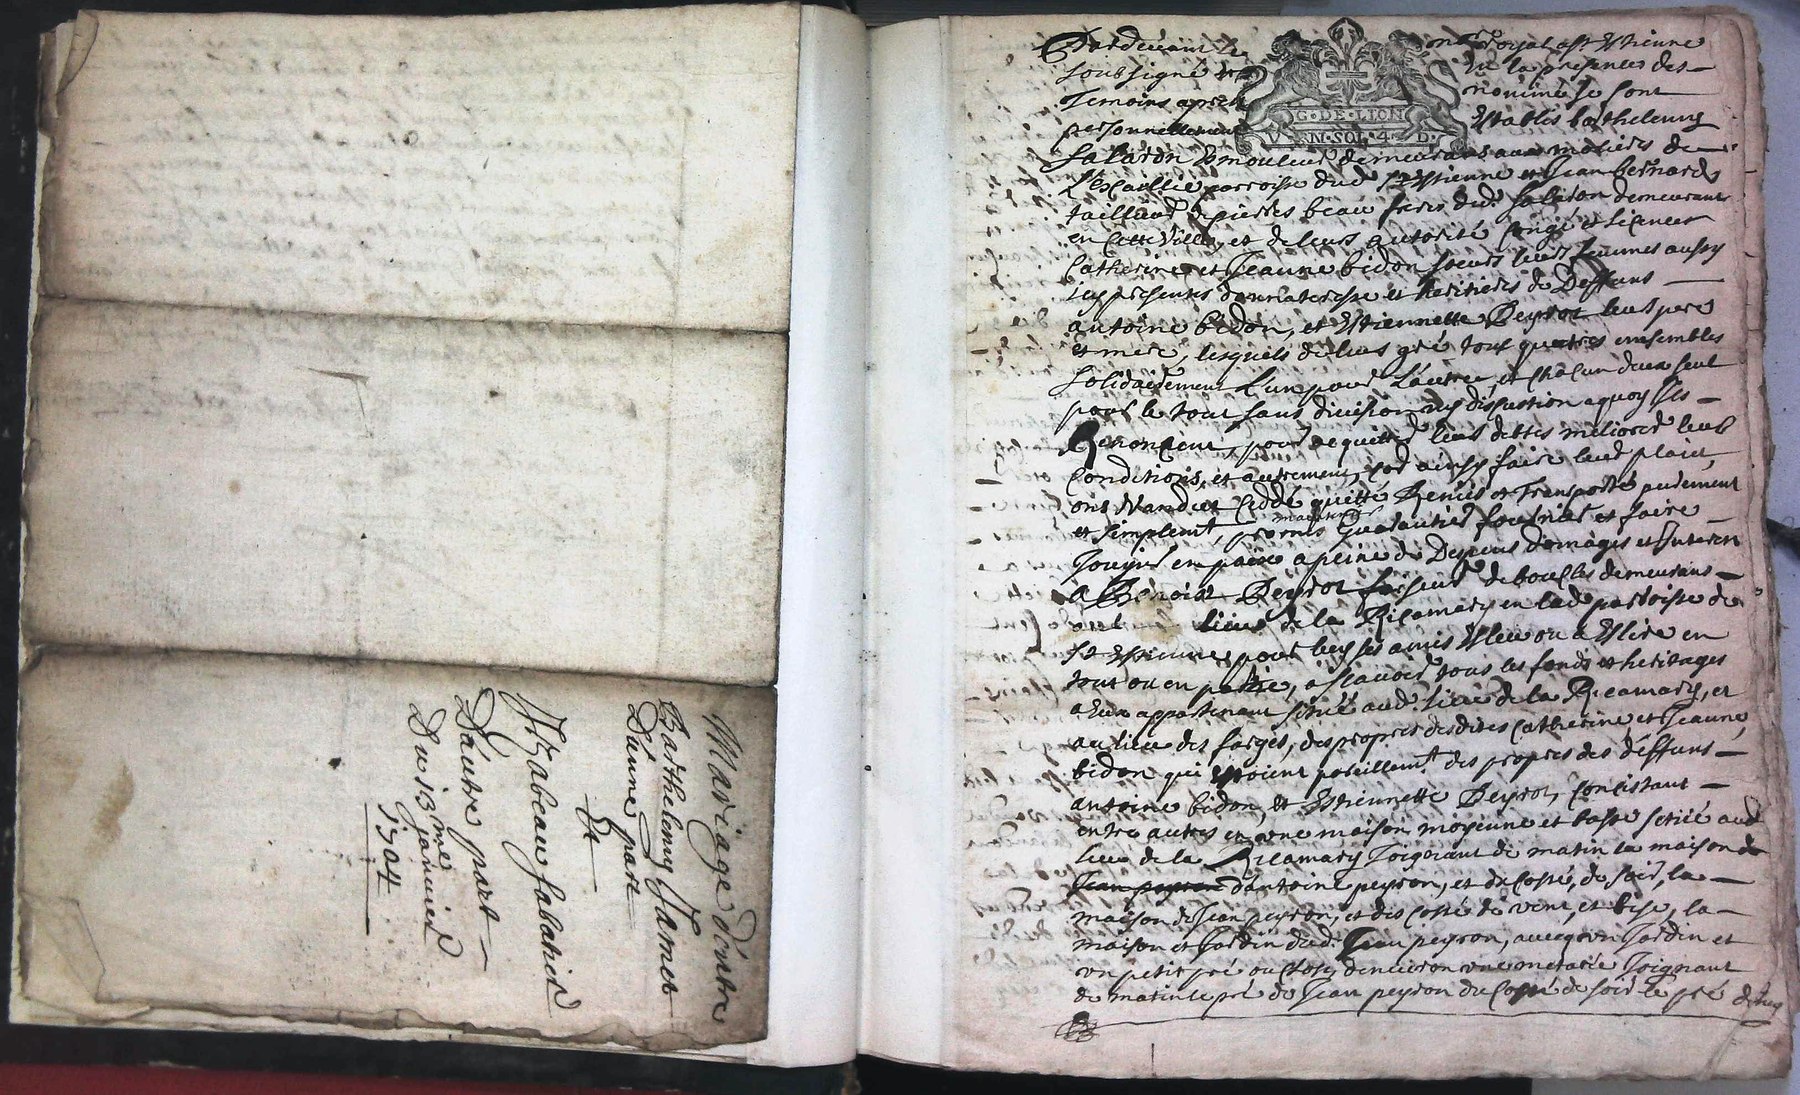 Mariage d'entre
Barthelemy Jamet
D'unne part
Et
Izabeau sabatier
Dautre part
Du 13me janvier
1704
Pardevant le no.re Royal a st Estienne
soubsigné et en la presence des
Temoins apres nommé se sont
personnellement Establis barthelemy
salaron Esmouleur demeurant aux molieres de
L'escallie parroisse dud. st Estienne et Jean bernard
tailleur de pierres beau frere dud. salaron demeurant
en cette ville, et de leurs autorité congé et licences
Catherine et Jeanne bidon soeurs leurs femmes aussy
icy presentes donnateresse et heritieres de Deffuns
antoine bidon, et Estiennette Peyrot leurs pere
et mere, lesquels de leurs gré tous quatres ensembles
solidairement L'un pour L'autre, et chacun deux seul
pour le tout sans division ny discution a quoy Ils
Renoncent, pour aquitter leurs dettes meliorer leurs
Conditions, et autrement, pour ainsy faire leur plaict,
ont Vandu Ceddé quitté Remis et Transporté purement
et simplem.t, promis maintenir Guarantir fournir et faire
Jouyre en paix a peine de Depens domages et Interest
a Benoist Peyrot faiseur de boucles demeurant
au lieu de la Ricamary en lad. parroisse de
st Estienne pour luy ses amis Esleu ou a Eslire en
tout ou en partie, a scavoir tous les fonds et heritages
a Eux appartenant scitué aud. lieu de la Ricamary, et
au lieu des farges, des propres desdites Catherine, et Jeanne
bidon qui Estoient pareillem.t des propres des deffuns
antoine bidon, et Estiennette Peyrot, Consistant
entre autres en une maison moyenne et basse scitué aud.
lieu de la Ricamary Joignant de matin la maison de
Jean peyron d'antoine peyron, et du costé, de soir, la
maison de Jean peyron, et des costé de vent, et bise, la
maison et Jardin dud. Jean peyron, avec un Jardin et
un petit pré ou clos, denviron une meterée Joignant
de matin le pré de Jean peyron du costé de soir le pré
G·DE·LION